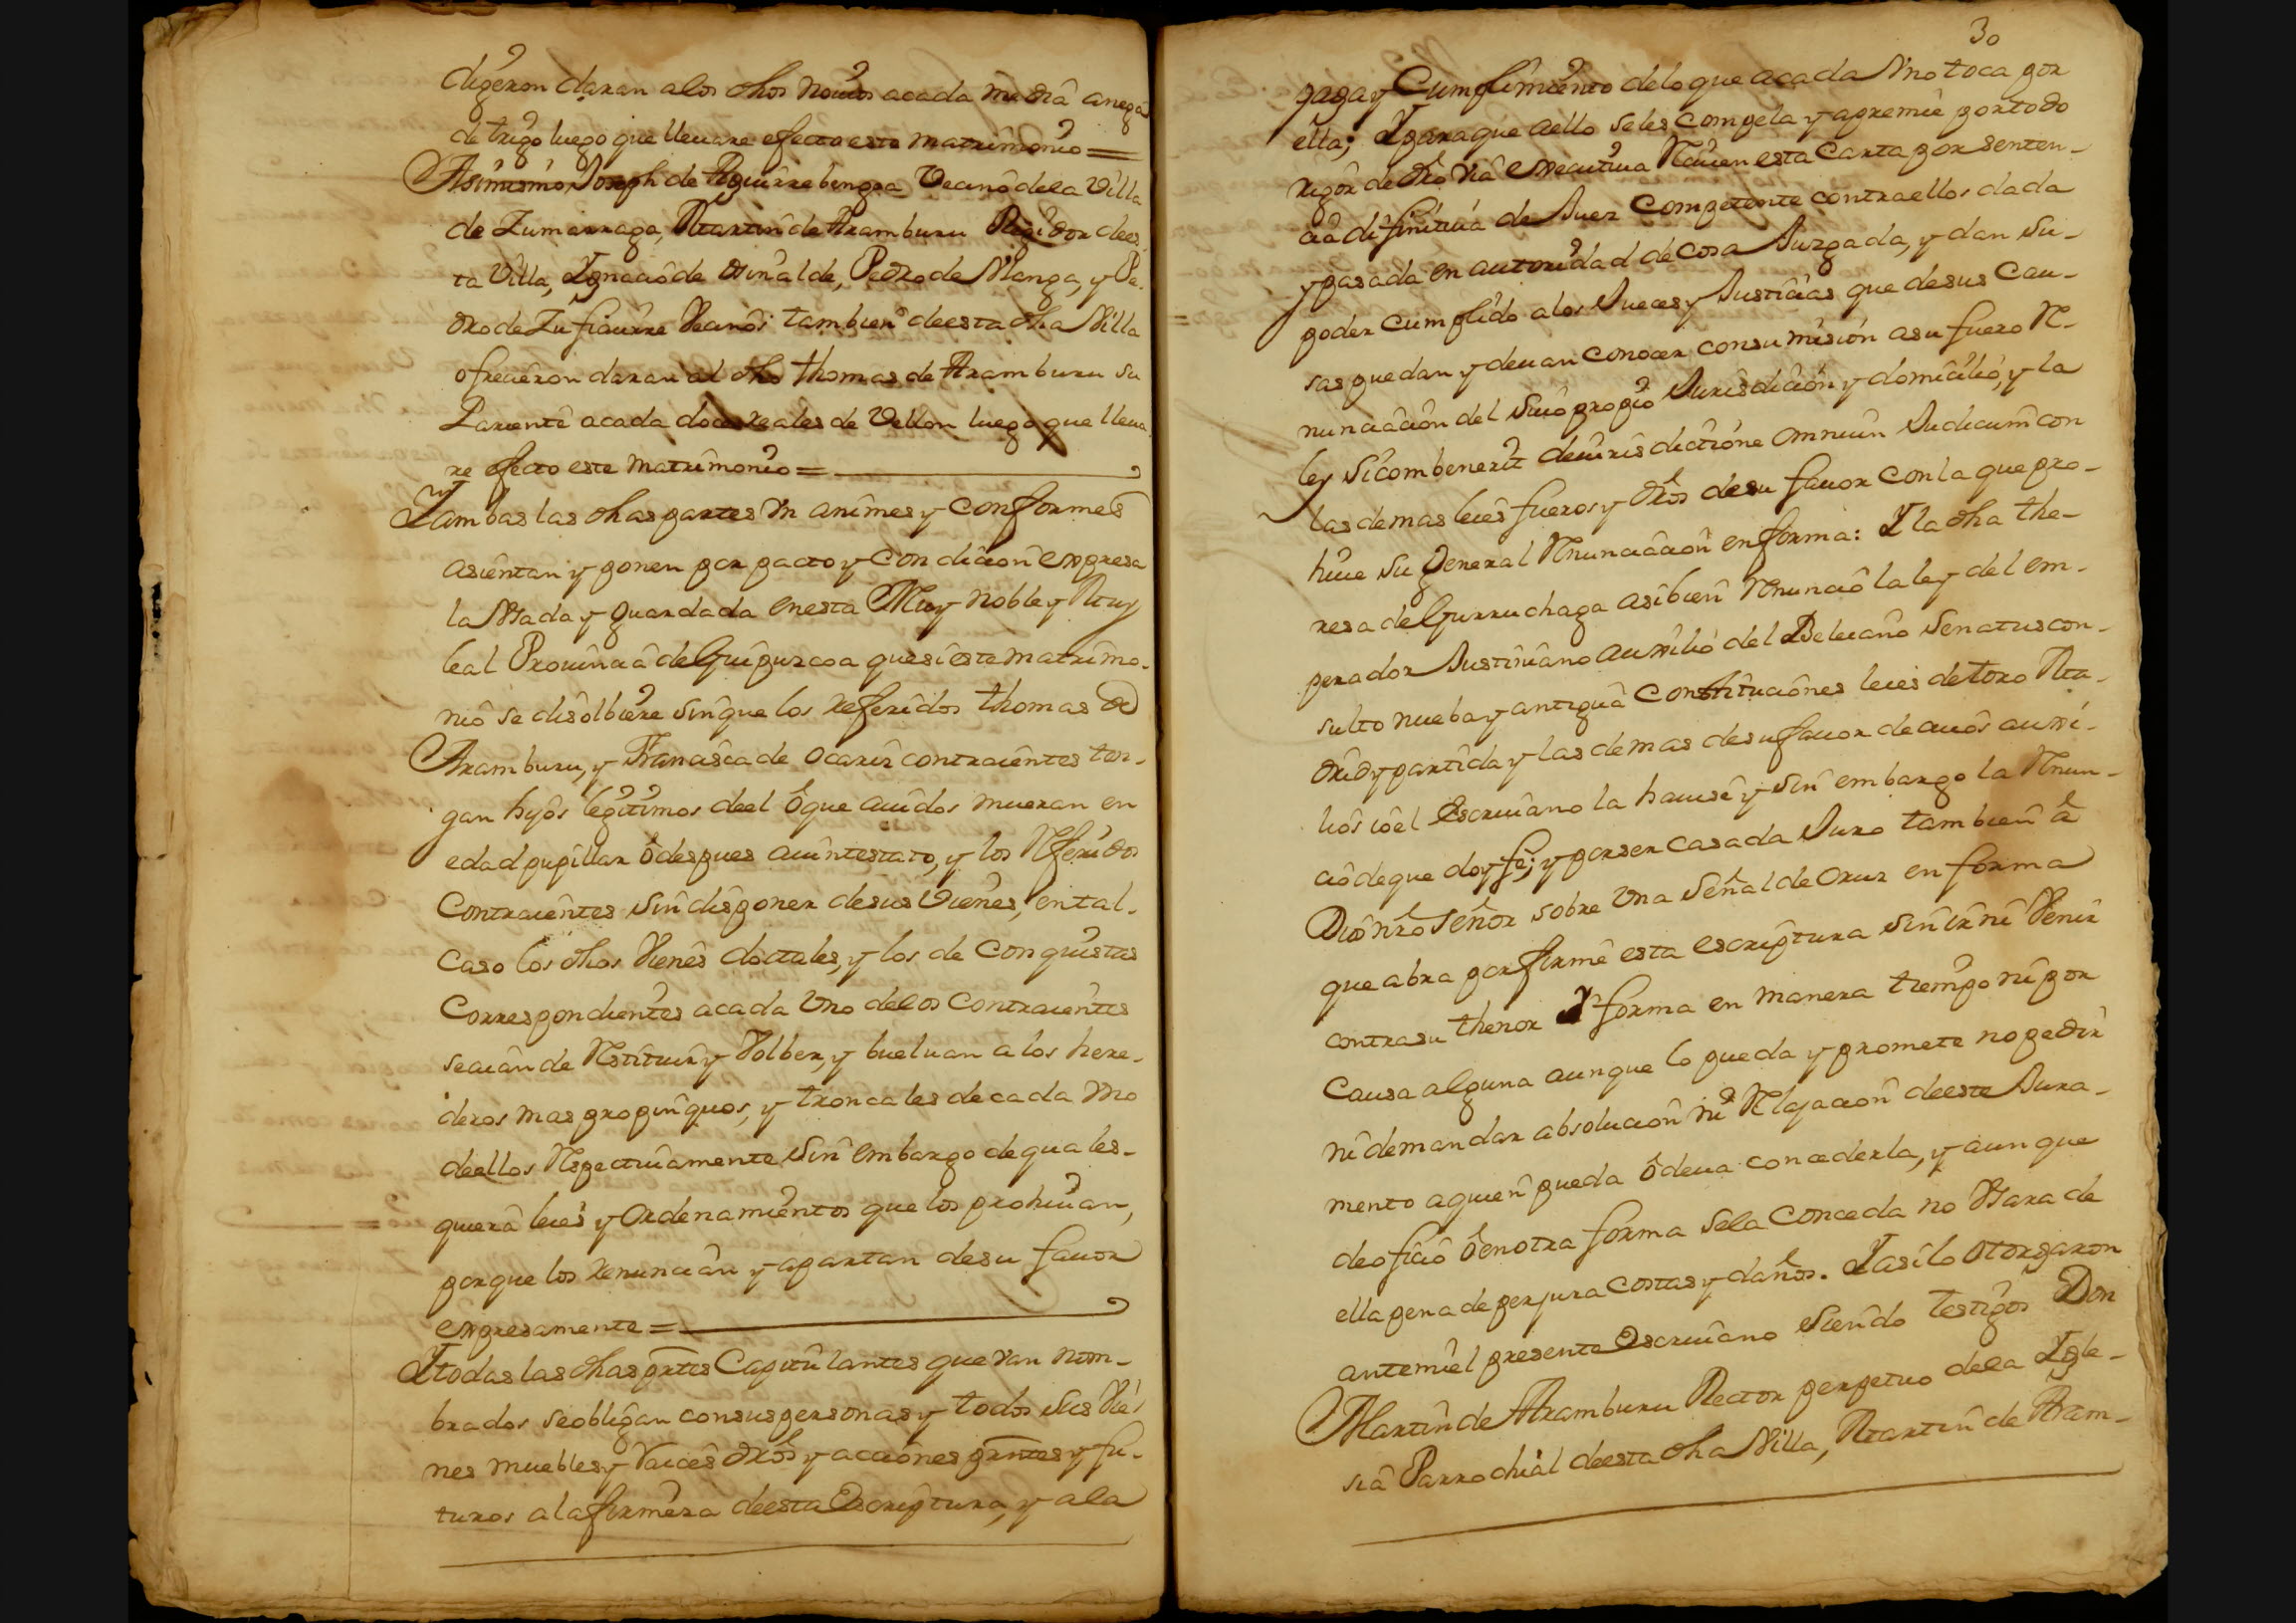 digeron daran alos dhos novios acada media anega
de trigo luego que lleuare efecto este matrimonio =
Asimismo Joseph de Aguirrebengoa Vecino dela Villa
de Zumarraga, Martin de Aramburu Regidor dees-
ta Villa, Ignacio de Osinalde, Pedro de Vlanga, y Pe-
dro de Zufiaurre Vecinos tambien deesta dha Villa
ofrecieron daran al dho thomas de Aramburu su
Pariente acada doce reales de Vellon luego que lleua-
re efecto este matrimonio =
Yambas las dhas partes Vnanimes y conformes
asientan y ponen por pacto y condicion expresa
la Vsada y guardada enesta Muy noble y Muy
leal Prouincia de Guipuzcoa que si este matrimo-
nio se disolbiere sin que los referidos thomas de
Aramburu, y Francisca de Ocariz contraientes ten-
gan hijos legitimos deel ô que auidos mueran en
edad pupillar ô despues auintestato, y los Referidos
Contraientes sin disponer desus Vienes, en tal-
Caso los dhos Vienes doctales, y los de Conquistas
Correspondientes acada Vno delos Contraientes
seaian de Restituir y Volber, y bueluan alos here-
deros mas propinquos, y troncales de cada Vno
deellos Respectiuamente sin embargo de quales-
quiera leies y ordenamientos que los prohiuan,
porque los renuncian y apartan desu fauor
expresamente =
Ytodas las dhas partes Capitulantes que van nom-
brados se obligan consus personas y todos sus Vie-
nes muebles y Raices dros y acciones prntes y fu-
turos ala firmeza deesta Escriptura, y ala
30
paga y Cumplimiento delo que acada Vno toca por
ella; Ypara que aello seles compela y apremie portodo
rigor de dro Via executiua Reciuen esta Carta por senten-
cia difinitiua de Juez Competente contra ellos dada
y pasada en autoridad de cosa Juzgada, y dan su-
poder cumplido alos Jueces y Justicias que desus Cau-
sas puedan y deuan conocer consumision asu fuero Re-
nunciacion del suio propio Jurisdicion y domicilio, y la
ley sicombenerit deiurisdictione omniun Judicum con
las demas leies fueros y dros desu fauor conla que pro-
hiue su General Renunciacion enforma: Yla dha the-
resa de Gurruchaga asibien Renuncio la ley del em-
perador Justiniano auxilio del Beleiano Senatuscon-
sulto nueba y antigua Constituciones leies de toro Ma-
drid y partida y las demas desufauor de cuios auxi-
lios io el Escriuano la hauise y sin embargo la Renun-
cio de que doy fe; y por ser casada Juro tambien â
Dios nro señor sobre Vna señal de Cruz en forma
que abra por firme esta escriptura sin ir ni Venir
contra su thenor y forma en manera tiempo ni por
Causa alguna aunque lo pueda y promete no pedir
ni demandar absolucion ni Relajacion deeste Jura-
mento aquien pueda ô deua concederla, y aunque
de oficio ô en otra forma sela conceda no Vsara de
ella pena de perjura costas y daños. Yasilo otorgaron
antemi el presente Escriuano siendo testigos Don
Martin de Aramburu Rector perpetuo dela Igle-
sia Parrochial deesta dha Villa, Martin de Aram-